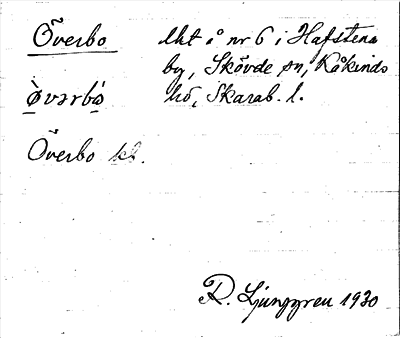 Överbo lht å nr 6 i Hafstena
by, Skövde sn, Kåkinds
òvərbó hd, Skarab. l.
Överbo kb.
R. Ljunggren 1930